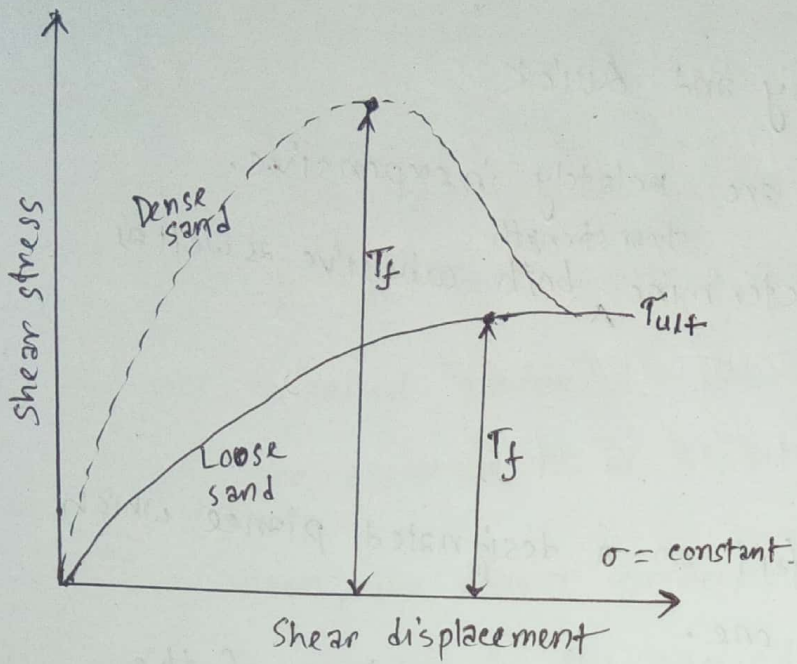 Shear stress
Dense
sand
τf
τult
Loose
sand
τf
σ = constant.
Shear displacement